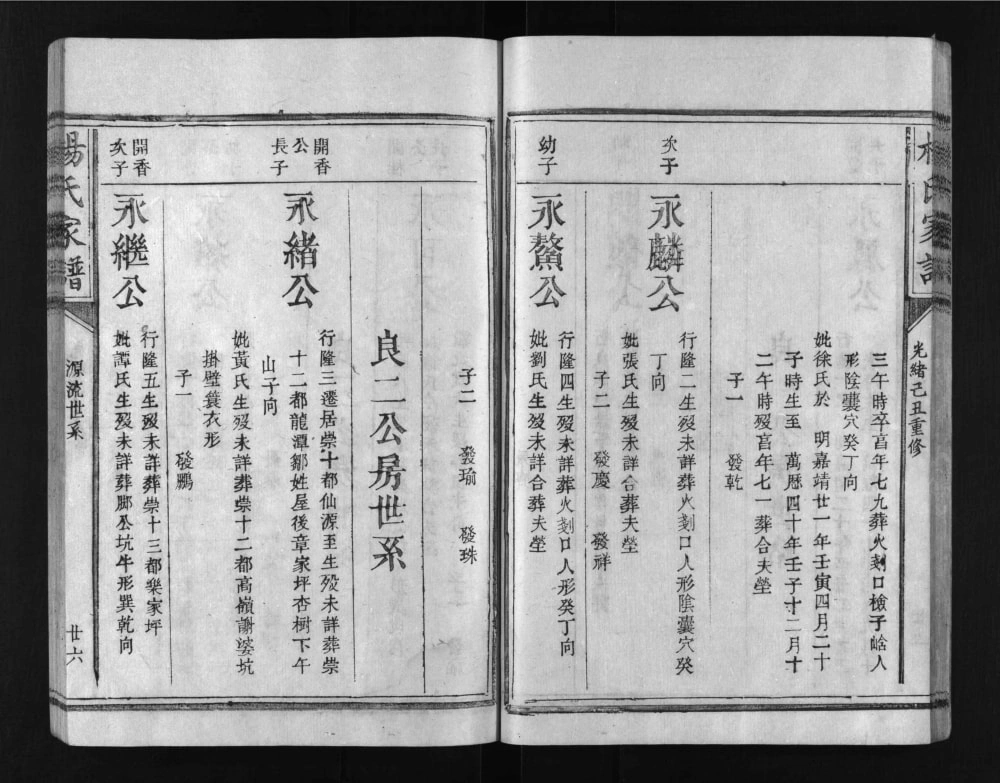 光緒己丑重修
三午時卒言年七九葬火刻口檢子峆人
形陰囊穴癸丁向
妣徐氏於 明嘉靖廿一年壬寅四月二十
子時生至 萬曆四十年壬子十二月十
二午時歿言年七一葬合夫塋
子一 發乾
次子
永麟公
行隆二生歿未詳葬火刻口人形陰囊穴癸
丁向
妣張氏生歿未詳合葬夫塋
子二 發慶 發祥
幼子
永鰲公
行隆四生歿未詳葬火刻口人形癸丁向
妣劉氏生歿未詳合葬夫塋
子二 發瑜 發珠
良二公房世系
開香
公
長子
永緒公
行隆三遷居崇十都仙源至生歿未詳葬崇
十二都龍潭鄒姓屋後章家坪杏樹下午
山子向
妣黃氏生歿未詳葬崇十二都高嶺謝婆坑
掛壁蓑衣形
子一 發鵬
開香
次子
永繼公
行隆五生歿未詳葬崇十三都樂家坪
妣譚氏生歿未詳葬腳公坑牛形巽乾向
楊氏家譜
源流世系
廿六